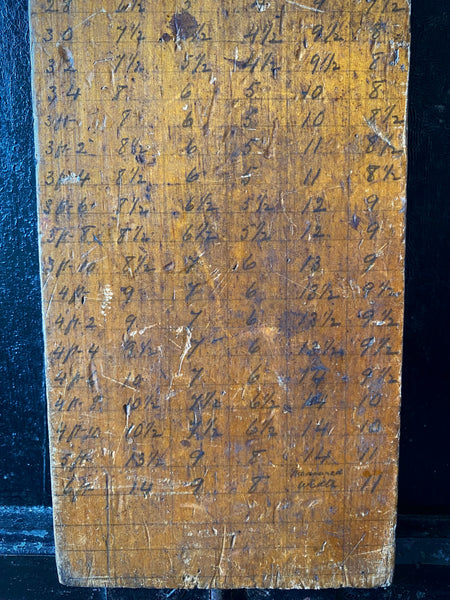 28 6½ 7½
30 7½ 5½ 4½ 9½ 8
32 7½ 5½ 4½ 9½ 8
34 8 6 5 10 8
3ft 8 6 5 10 8½
3ft-2 8½ 6 5 11 8½
3ft-4 8½ 6 5 11 8½
3ft-6 8½ 6½ 5½ 12 9
3ft-8 8½ 6½ 5½ 12 9
3ft-10 8½ 7 6 13 9
4ft 9 7 6 13½ 9½
4ft-2 9 7 6 13½ 9½
4ft-4 9½ 7 6 13½ 9½
4ft-6 10 7 6 14 9½
4ft-8 10½ 7½ 6½ 14 10
4ft-10 10½ 7½ 6½ 14 10
5ft 13½ 9 8 14 11
14 9 8 11